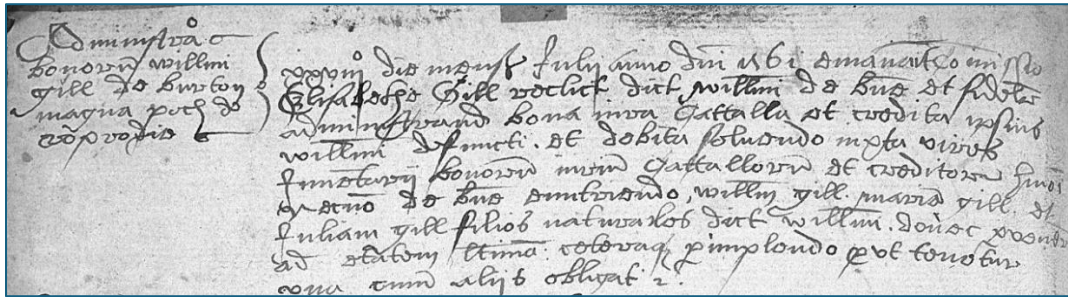 Administra͠c
bonorū willmi
gill de burton
magna poch de
rõprodie
xxviijº die mens Julij anno dni 1561 emanavit Comissio
Elisabethe Gill relict dict willmi de bñe et fidelr
administrand bona iura Cattalla et credita ipsius
willmi defuncti . et debita solvendo iuxta vires
Inventarij bonorū iuriū Cattallorū et creditorū hmoi
Necnō de bñe enutriendo, willm gill . mariā gill . et
Julian gill filios naturales dict willmi . donec pvener
ad etatem ltimā . ceteraq pimplendo put tenetur
una cum aliis obligat